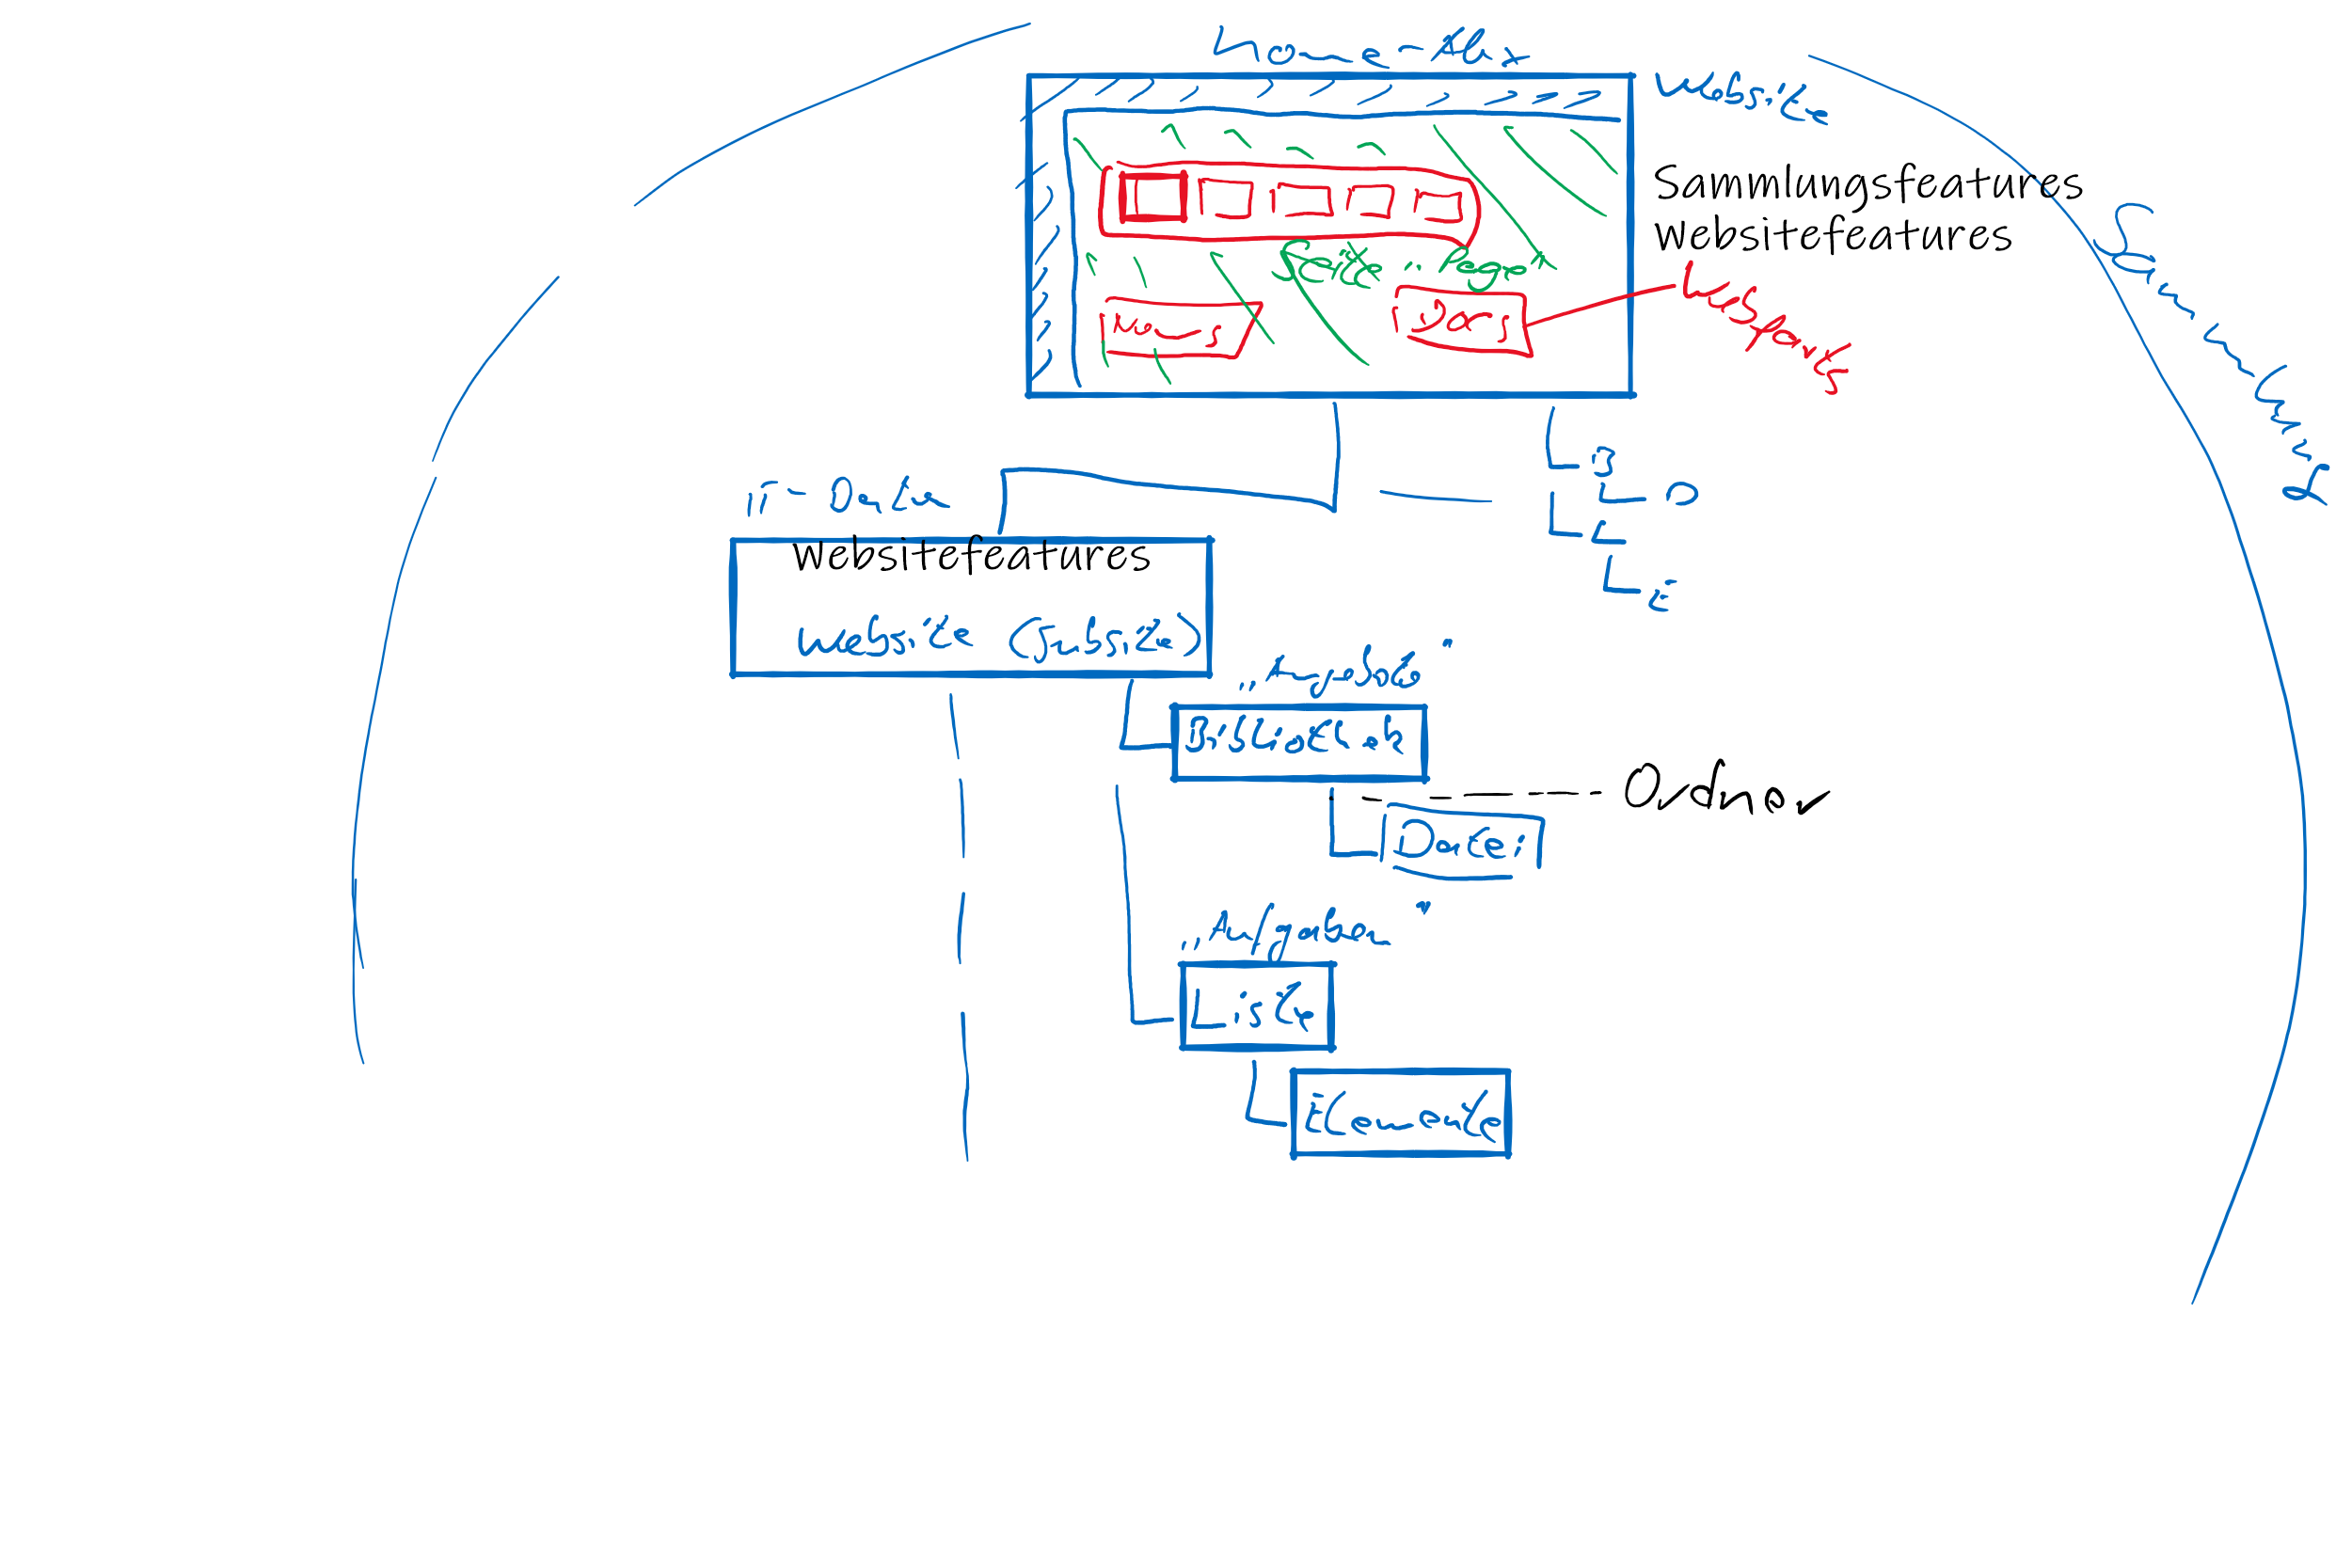 Website
Sammlungsfeatures
Websitefeatures
Sammlung
Seite "Page"
News
Docs
Webparts
B
D
L
E
Websitefeatures
Website (Subsite)
„Angebote"
Bibliothek
Ordner
Datei
„Aufgaben"
Liste
Elemente